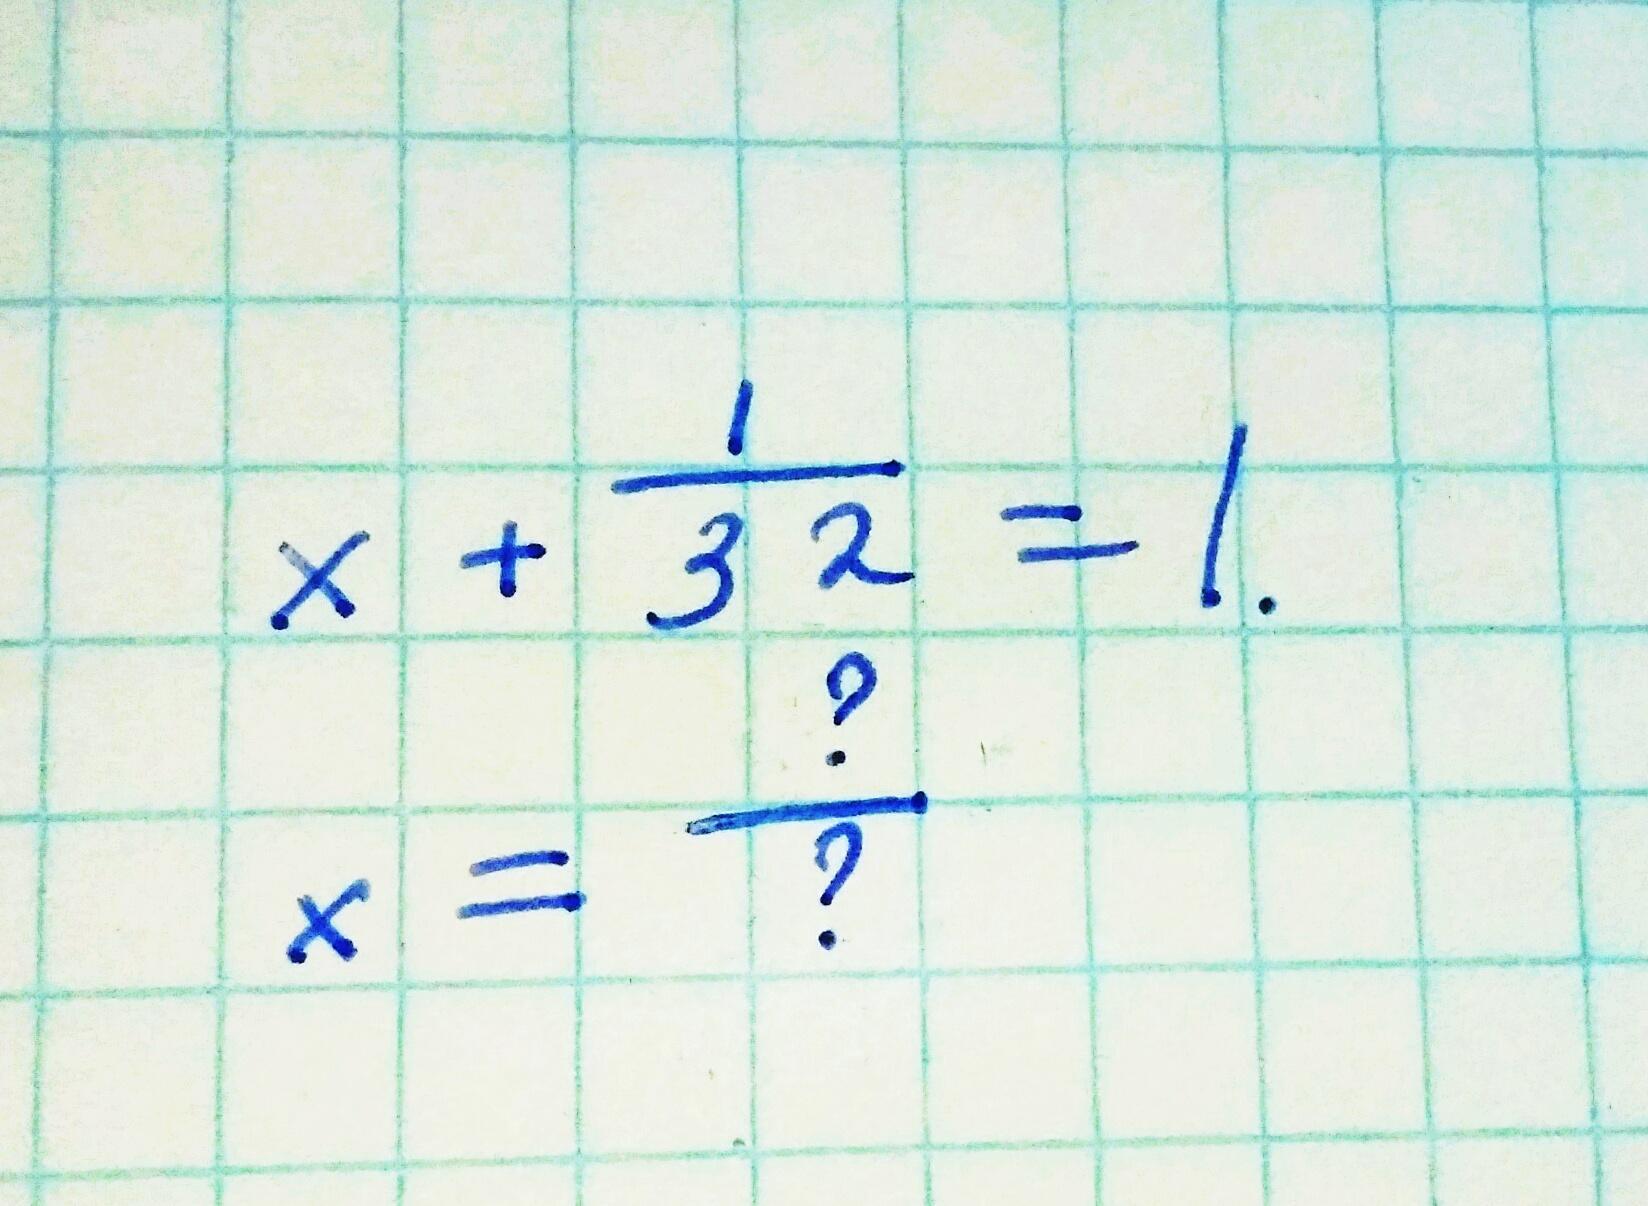 x + 1/32 = 1.
x = ?/?